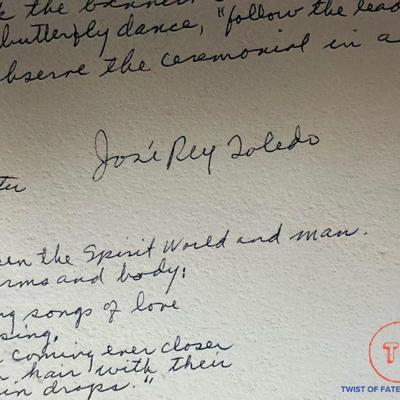 k the banner
butterfly dance, "follow the lead
bserve the ceremonial in a
José Rey Toledo
ter
een the Spirit World and man.
rms and body:
ng songs of love
sing,
coming ever closer
r hair with their
in drops."
T
TWIST OF FATE